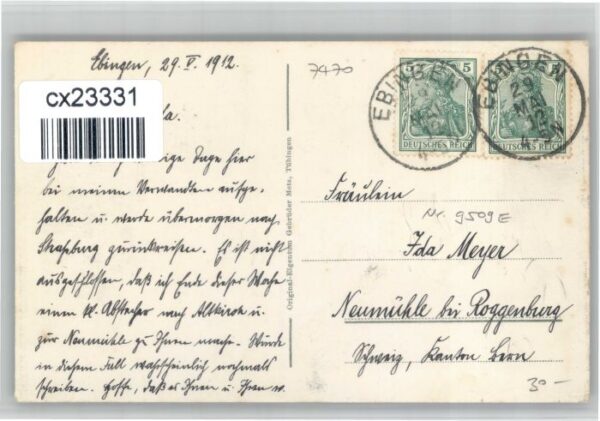 Ebingen, 29. V. 1912.
7470
cx23331
la.
ige Tage hier
bei meinen Verwandten aufge-
halten u. werde übermorgen nach
Straßburg zurückreisen. Es ist nicht
ausgeschlossen, daß ich Ende dieser Woche
einen kl. Abstecher nach Altkirch u.
zur Neumühle zu Ihnen mache. Würde
in diesem Fall wahrscheinlich nochmals
schreiben. Hoffe, daß es Ihnen u. Ihren w.
Original-Eigentum Gebrüder Metz, Tübingen
5
DEUTSCHES REICH
DEUTSCHES REICH
EBINGEN
EBINGEN
29
MAI
12
Fräulein
Nr. 9509 E
Ida Meyer
Neumühle bei Roggenburg
Schweiz, Kanton Bern
30 –